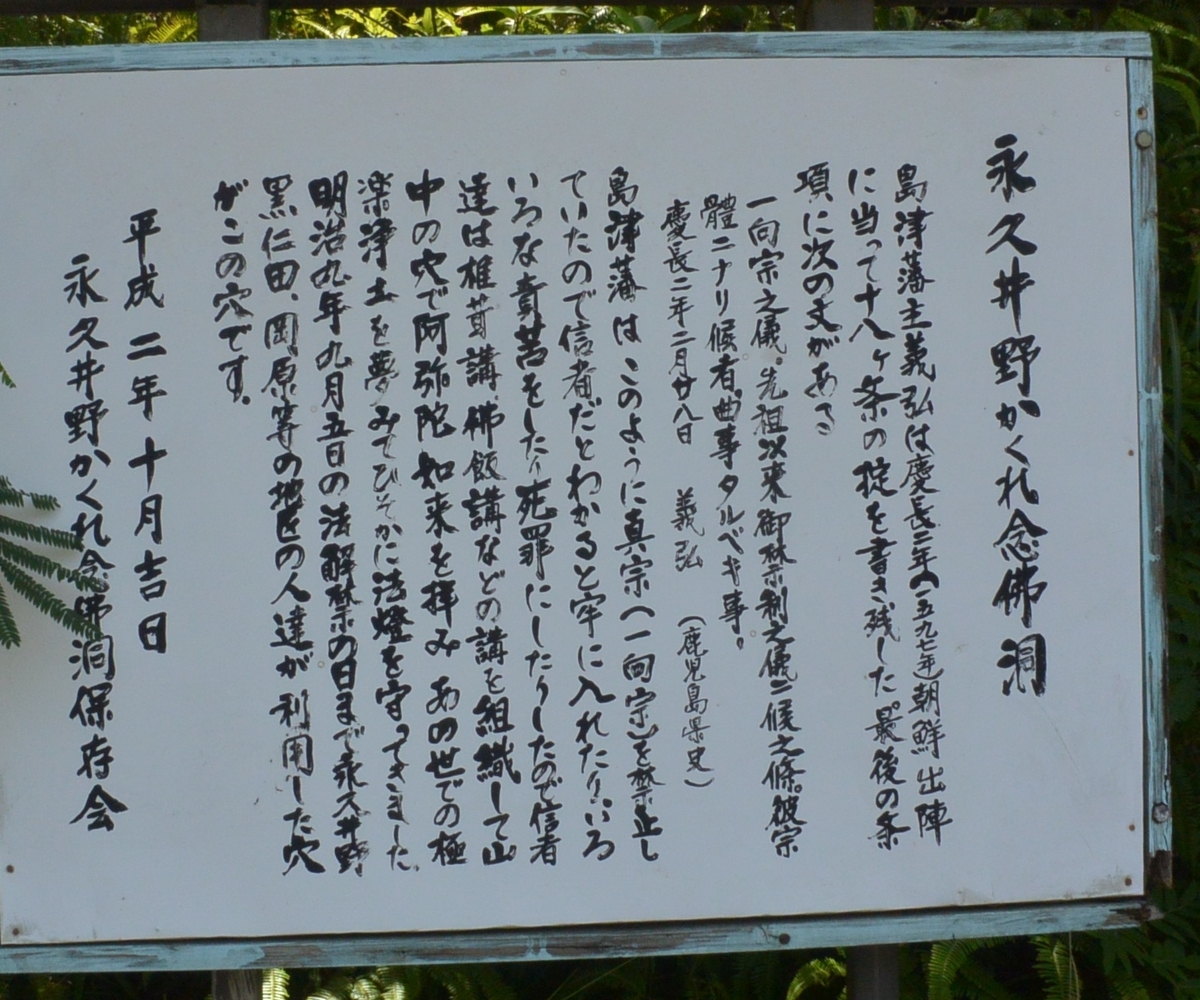 永久井野かくれ念佛洞
島津藩主義弘は慶長二年(一五九七年)朝鮮出陣
に当って十八ヶ条の掟を書き残した。最後の条
項に次の文がある
一向宗之儀。先祖以来御禁制之儀ニ候之條。彼宗
體ニナリ候者。曲事タルベキ事。
慶長二年二月廿八日 義弘 (鹿児島県史)
島津藩はこのように真宗(一向宗)を禁止し
ていたので信者だとわかると牢に入れたり、いろ
いろな責苦をしたり死罪にしたりしたので信者
達は椎茸講、佛飯講などの講を組織して山
中の穴で阿弥陀如来を拝みあの世での極
楽浄土を夢みてひそかに法燈を守ってきました。
明治九年九月五日の法解禁の日まで永久井野
黒仁田、岡原等の地区の人達が利用した穴
がこの穴です。
平成二年十月吉日
永久井野かくれ念佛洞保存会